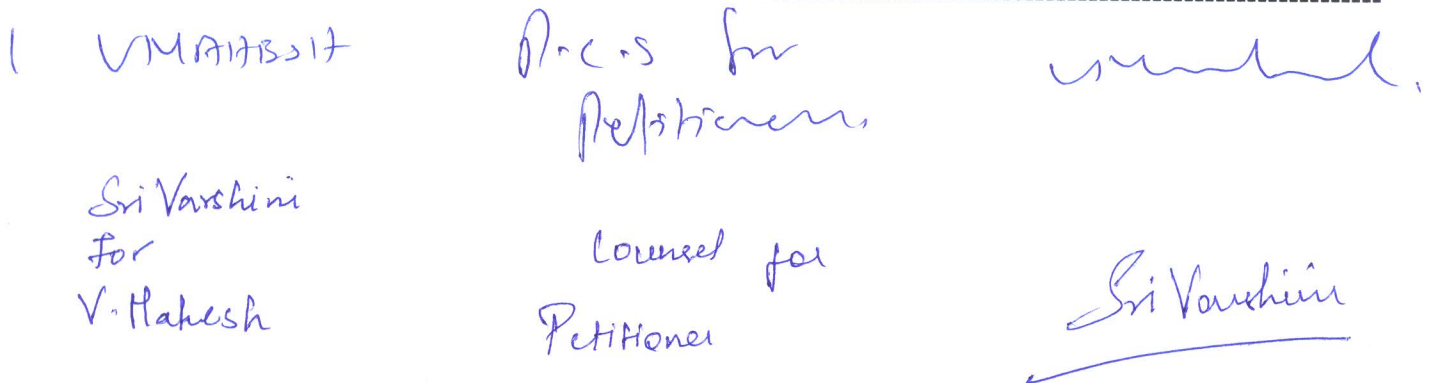 1 P.C.S for
Petitioner.
Sri Varshini
For
V. Mahesh
Counsel for
Petitioner
Sri Varshini